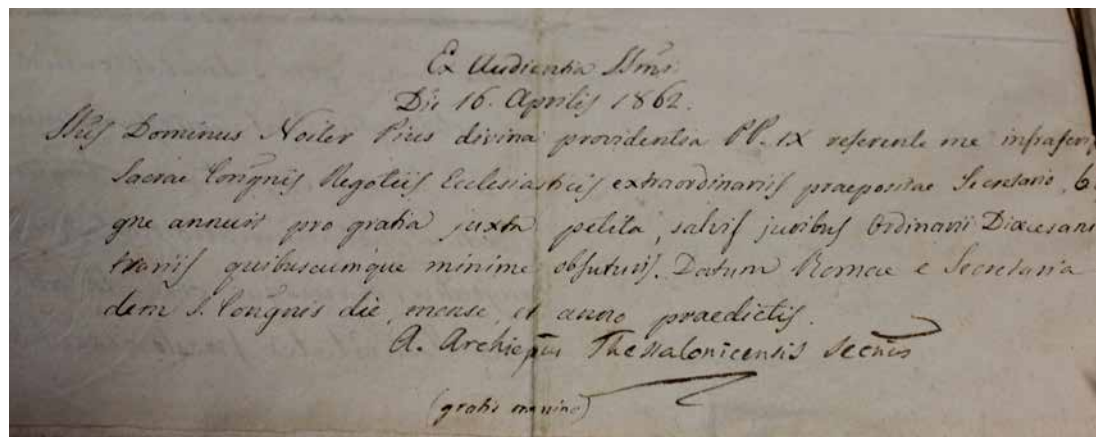 Ex Audientia SSmi.
Die 16. Aprilis 1862.
SSus Dominus Noster Pius divina providentia PP. IX referente me infrascri
Sacrae Congnis Negotiis Ecclesiasticis extraordinariis praepositae Secretario, b
gne annuit pro gratia juxta petita, salvis juribus Ordinarii Dioecesani
trariis quibuscumque minime obfuturis. Datum Romae e Secretaria
dem S. Congnis die, mense, et anno praedictis.
A. Archiepus Thessalonicensis Secrius
(gratis omnino)